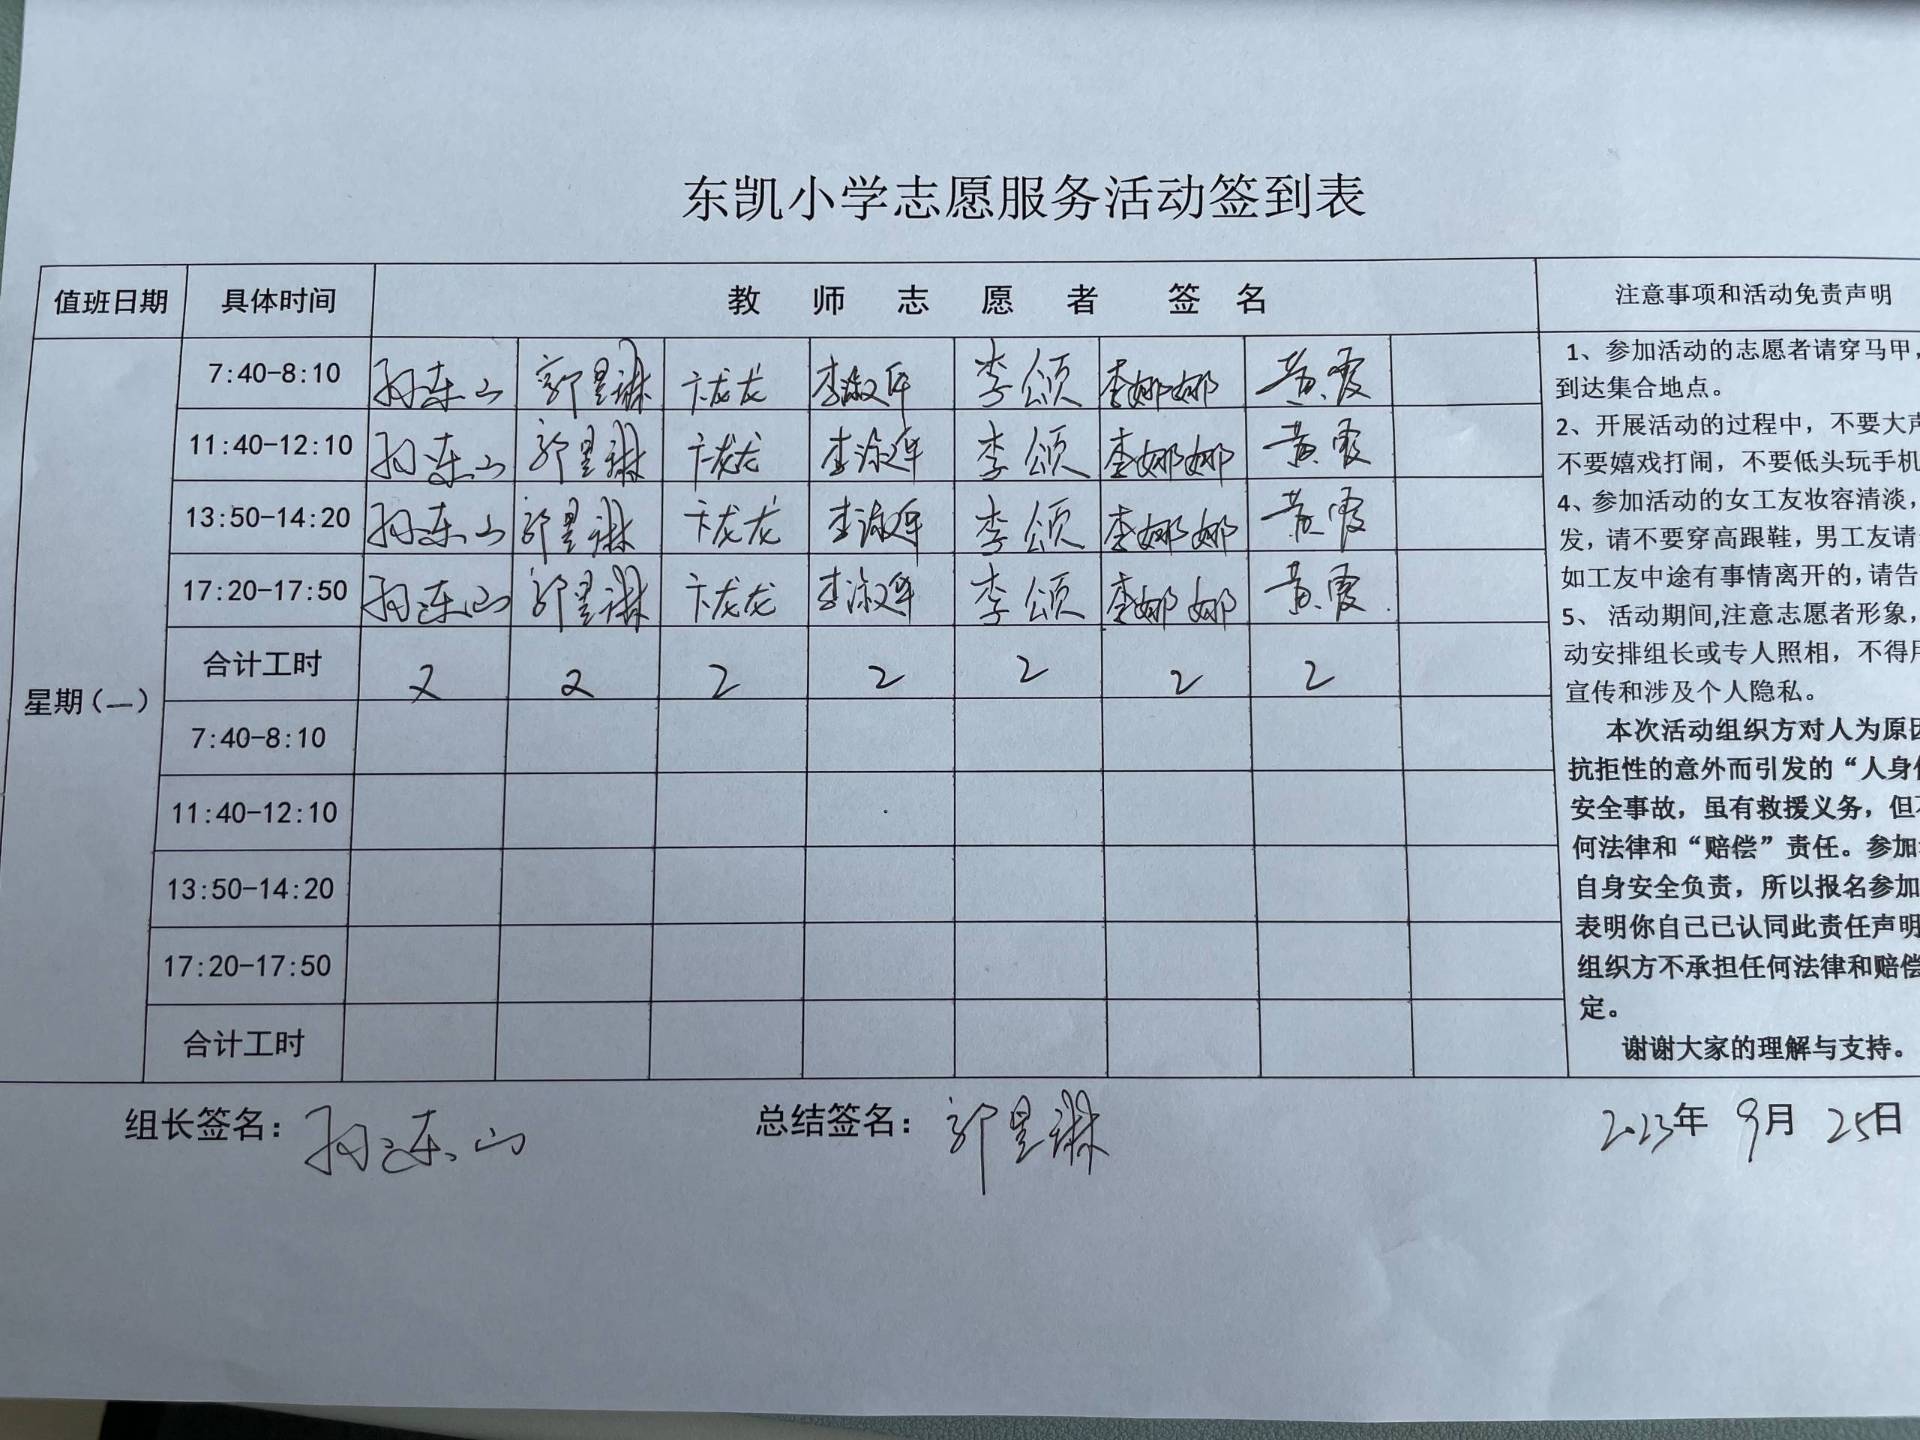 东凯小学志愿服务活动签到表
值班日期 具体时间 教师志愿者签名 注意事项和活动免责声明
星期(一)
7:40-8:10 孙连山 郭昱琳 卞龙龙 李淑军 李颂 李娜娜 黄霞
11:40-12:10 孙连山 郭昱琳 卞龙龙 李淑军 李颂 李娜娜 黄霞
13:50-14:20 孙连山 郭昱琳 卞龙龙 李淑军 李颂 李娜娜 黄霞
17:20-17:50 孙连山 郭昱琳 卞龙龙 李淑军 李颂 李娜娜 黄霞
合计工时 2 2 2 2 2 2 2
7:40-8:10
11:40-12:10
13:50-14:20
17:20-17:50
合计工时
1、参加活动的志愿者请穿马甲,
到达集合地点。
2、开展活动的过程中，不要大声
不要嬉戏打闹，不要低头玩手机
4、参加活动的女工友妆容清淡，
发，请不要穿高跟鞋，男工友请
如工友中途有事情离开的，请告
5、活动期间,注意志愿者形象，
动安排组长或专人照相，不得用
宣传和涉及个人隐私。
本次活动组织方对人为原因
抗拒性的意外而引发的“人身
安全事故，虽有救援义务，但不
何法律和“赔偿”责任。参加
自身安全负责，所以报名参加
表明你自己已认同此责任声明
组织方不承担任何法律和赔偿
定。
谢谢大家的理解与支持。
组长签名：孙连山 总结签名：郭昱琳 2023年 9月 25日